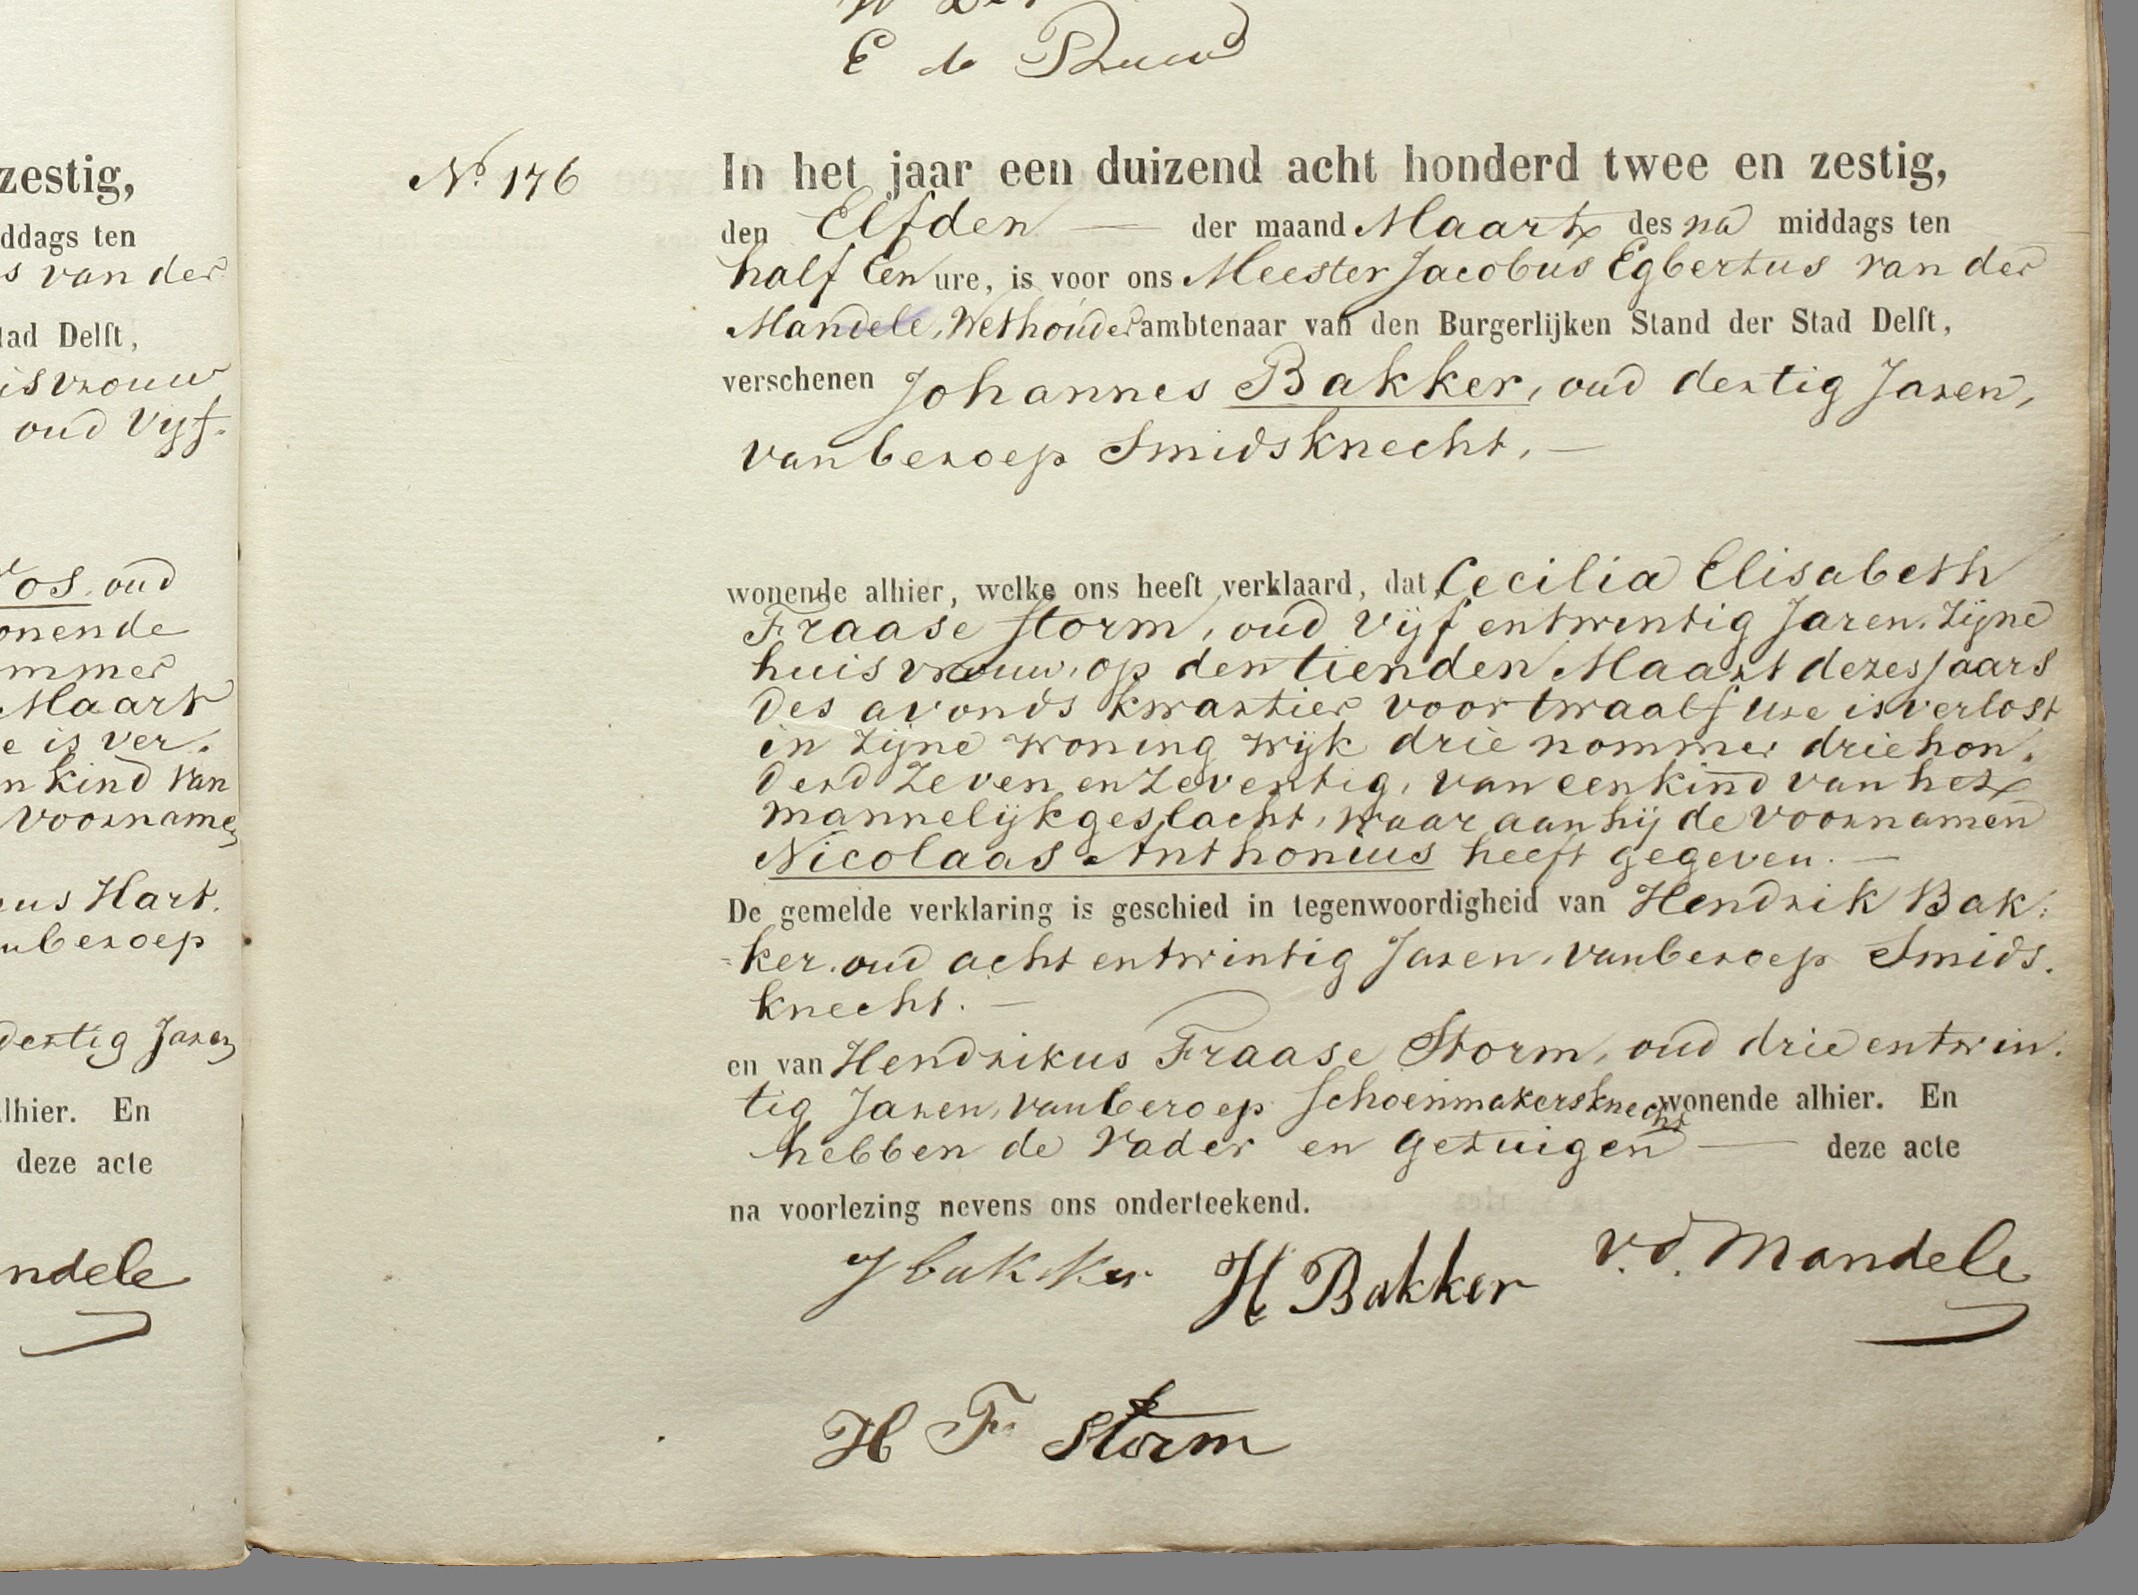 zestig,
ddags ten
s van der
tad Delft,
isvrouw
oud Vijf-
os, oud
onende
ommer
Maart
e is ver-
n kind van
voorname
us Hart-
nberoep
dertig Jaren
alhier. En
deze acte
ndele
E de
No. 176
In het jaar een duizend acht honderd twee en zestig,
den Elfden — der maand Maart des na middags ten
half Een ure, is voor ons Meester Jacobus Egbertus van der
Mandele, Wethouder ambtenaar van den Burgerlijken Stand der Stad Delft,
verschenen Johannes Bakker, oud dertig Jaren,
van beroep Smidsknecht, —
wonende alhier, welke ons heeft verklaard, dat Cecilia Elisabeth
Fraase Storm, oud Vijf en twintig Jaren, zijne
huisvrouw, op den tienden Maart dezes jaars
des avonds kwartier voor twaalf ure is verlost
in zijne woning wijk drie nommer driehon-
derd zeven en zeventig, van een kind van het
mannelijk geslacht, waar aan hij de voornamen
Nicolaas Anthonius heeft gegeven. —
De gemelde verklaring is geschied in tegenwoordigheid van Hendrik Bak-
-ker, oud acht en twintig Jaren, van beroep Smids-
knecht. —
en van Hendrikus Fraase Storm, oud drie en twin-
tig Jaren, van beroep Schoenmakersknecht wonende alhier. En
hebben de Vader en getuigen — deze acte
na voorlezing nevens ons onderteekend.
J bakker H Bakker v.d. Mandele
H Fr Storm